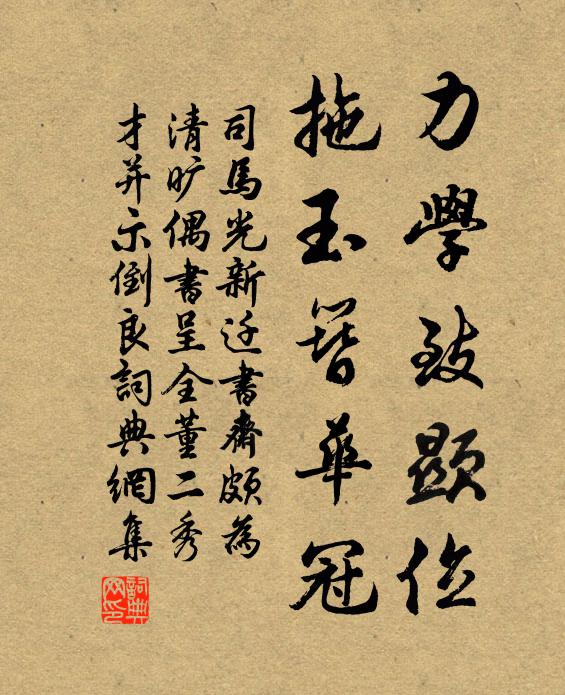 力學致顯位
拖玉簪華冠
司馬光新迁書齋頗為
清旷偶書呈全董二秀
才并示倒良詞典網集
詞典
网印